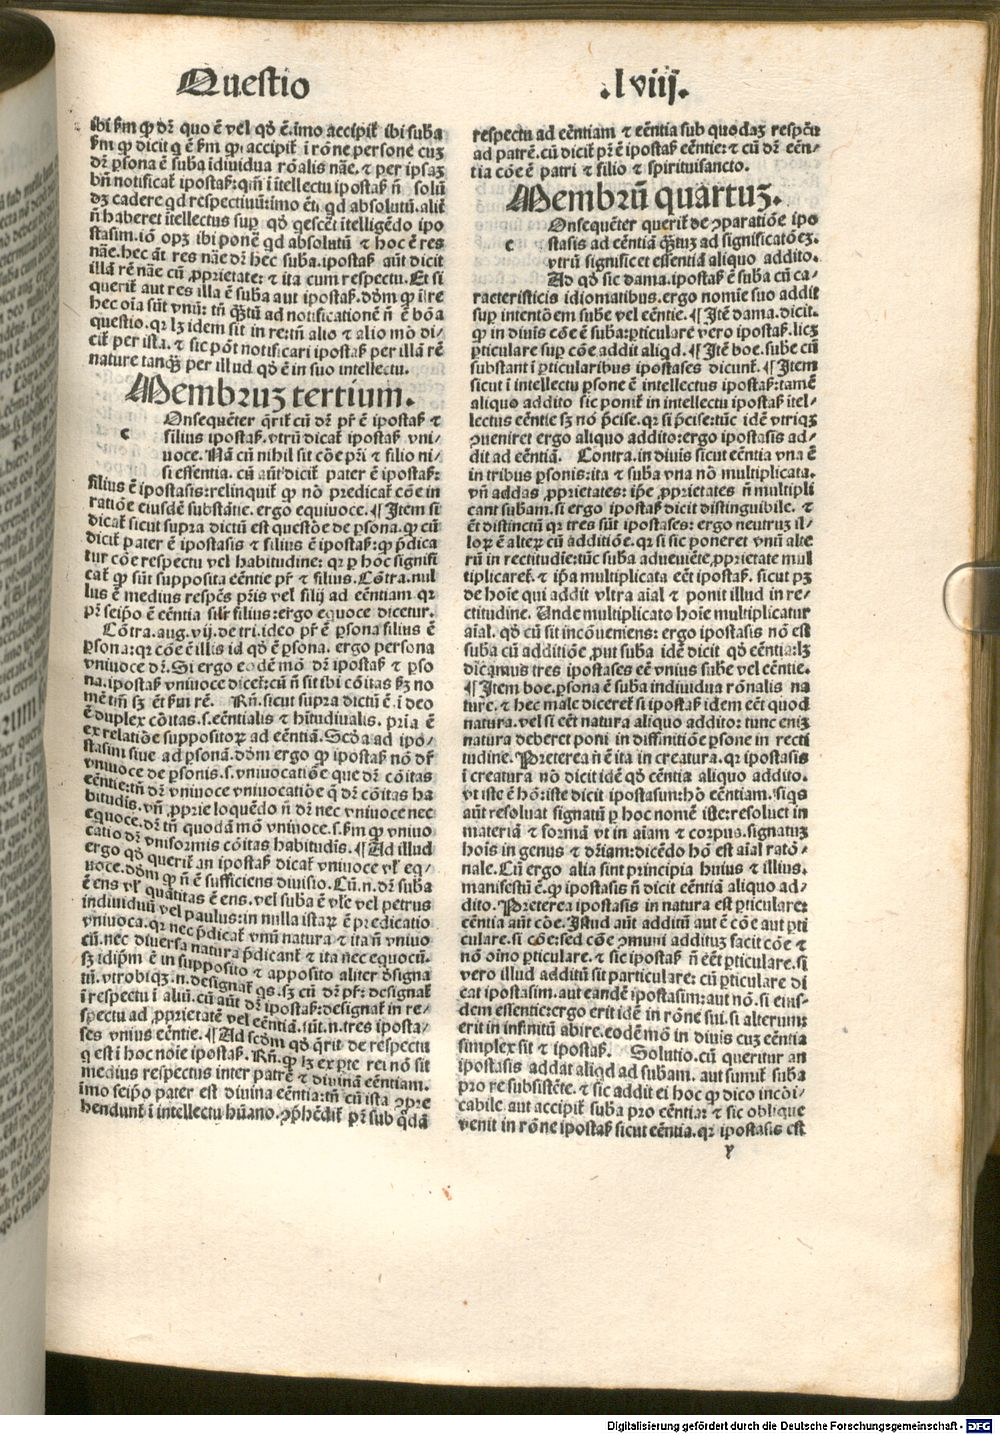 Questio .lviij.
ibi ẜm ꝙ dr̄ quo ē vel qđ ē. imo accipit̉ ibi suba
ẜm ꝙ dicit q ē ẜm ꝙ. accipit̉ i rōne persone cuȝ
dr̄ ꝑsona ē suba idiuidua rōalis nāe. ⁊ per ipsaȝ
bñ notificat̉ ipostas̉: qm̄ i itellectu ipostas̉ ñ solū
dȝ cadere qd respectiuū: imo ēt qd absolutū. alit̉
ñ haberet itellectus suꝑ qđ gescēt itelligēdo ipo
stasim. iō opȝ ibi ponē qd absolutū ⁊ hoc ē res
nāe. hec āt res nāe dr̄ hec suba. ipostas̉ aūt dicit
illā rē nāe cū ꝓprietate: ⁊ ita cum respectu. Et si
querit̉ aut res illa ē suba aut ipostas̉. dōm ꝙ i re
hec oīa sūt vnū: tñ qȝtū ad notificationē ñ ē bōa
questio. qꝛ lȝ idem sit in re: tñ alio ⁊ alio mō di/
cit̉ per ista. ⁊ sic pōt notificari ipostas̉ per illā rē
nature tanqȝ per illud qđ ē in suo intellectu.
Membruȝ tertium.
c Onsequēter q̄rit̉ cū dr̄ pr̄ ē ipostas̉ ⁊
filius ipostas̉. vtrū dicat̉ ipostas̉ vni/
uoce. Nā cū nihil sit cōe pr̄i ⁊ filio ni/
si essentia. cū aūt dicit̉ pater ē ipostas̉:
filius ē ipostasis: relinquit̉ ꝙ nō predicat̉ cōe in
ratiōe eiusdē substātie. ergo equiuoce. ¶ Item si
dicat̉ sicut supra dictū est questōe de ꝑsona. ꝙ cū
dicit̉ pater ē ipostasis ⁊ filius ē ipostas̉: ꝙ p̄dica
tur cōe respectu vel habitudine: qꝛ ꝑ hoc signifi
cat̉ ꝙ sūt supposita eētie pr̄ ⁊ filius. Cōtra. nul
lus ē medius respc̄s pr̄is vel filij ad eētiam qꝛ
pr̄ seipo ē eētia silr̄ filius: ergo equoce dicetur.
Cōtra. aug. vij. de tri. ideo pr̄ ē ꝑsona filius ē
ꝑsona: qꝛ cōe ē illis id qđ ē ꝑsona. ergo persona
vniuoce dr̄. Si ergo eodē mō dr̄ ipostas̉ ⁊ ꝑso
na. ipostas̉ vniuoce dicet̉: cū ñ sit ibi cōitas ẜȝ no
mē tm̄ sȝ ēt ẜm rē. Rñ. sicut supra dictū ē. i deo
ē duplex cōitas. s. eēntialis ⁊ hitudinalis. pria ē
ex relatiōe suppositoꝝ ad eētiam. Scđa ad ipo/
stasim siue ad ꝑsonā. dōm ergo ꝙ ipostas̉ nō dr̄
vniuoce de ꝑsonis. s. vniuocatiōe que dr̄ cōitas
eēntie: tñ dr̄ vniuoce vniuocatiōe q̄ dr̄ cōitas ha
bitudis. vñ ꝓprie loquēdo ñ dr̄ nec vniuoce nec
equoce. dr̄ tñ quodā mō vniuoce. s. ẜm ꝙ vniuo
catio dr̄ vniformis cōitas habitudis. ¶ Ad illud
ergo qđ querit̉ an ipostas̉ dicat̉ vniuoce vl̉ eq/
uoce. dōm ꝙ ñ ē sufficiens diuisio. Cū. n. dr̄ suba
ē ens vl̉ quātitas ē ens. vel suba ē vl̉e vel petrus
indiuiduū vel paulus: in nulla istaꝝ ē predicatio
vniuoca. qꝛ nec p̄dicat̉ vnū natura ⁊ ita ñ vniuo
cū. nec diuersa natura p̄dicant̉ ⁊ ita nec equocū.
sȝ idip̄m ē in supposito ⁊ apposito aliter dsigna
tū. vtrobiqȝ. n. designat̉ qs. sȝ cū dr̄ pr̄: designat̉
i respectu i aliū. cū aūt dr̄ ipostas̉: designat̉ in re/
spectu ad ꝓprietatē vel eēntiā. sūt. n. tres iposta/
ses vnius eēntie. ¶ Ad scđm qđ q̄rit̉ de respectu
q est i hoc noīe ipostas̉. Rñ. ꝙ lȝ ex pte rei nō sit
medius respectus inter patrē ⁊ diuinā eēntiam.
imo seipo pater est diuina eēntia: tñ cū ista ꝯpre
hendunt̉ i intellectu hūano. ꝯp̄hēdit̉ pr̄ sub q̄dā
respectu ad eēntiam ⁊ eēntia sub quodaȝ respc̄tu
ad patrē. cū dicit̉ pr̄ ē ipostas̉ eēntie: ⁊ cū dr̄ eēn/
tia cōe ē patri ⁊ filio ⁊ spirituisancto.
Membrū quartuȝ.
c Onsequēter querit̉ de ꝯparatiōe ipo
stasis ad eēntiā qȝtuȝ ad significatōeȝ.
vtrū significet essentiā aliquo addito.
Ad qđ sic dama. ipostas̉ ē suba cū ca/
racteristicis idiomatibus. ergo nomīe suo addit
suꝑ intentōem sube vel eēntie. ¶ Itē dama. dicit.
ꝙ in diuīs cōe ē suba: ꝑticulare vero ipostas̉. licȝ
ꝑticulare suꝑ cōe addit aliqd. ¶ Itē boe. sube cū
substant i ꝑticularibus ipostases dicunt̉. ¶ Item
sicut i intellectu ꝑsone ē intellectus ipostas̉: tamē
aliquo addito sic ponit̉ in intellectu ipostas̉ itel/
lectus eēntie sȝ nō p̄cise. qꝛ si p̄cise: tūc idē vtriqȝ
ꝯueniret ergo aliquo addito: ergo ipostasis ad/
dit ad eēntiā. Contra. in diuis sicut eēntia vna ē
in tribus ꝑsonis: ita ⁊ suba vna nō multiplicata.
vñ addas ꝓprietates: ip̄e ꝓprietates ñ multipli
cant subam. si ergo ipostas̉ dicit distinguibile. ⁊
ēt distinctū qꝛ tres sūt ipostases: ergo neutruȝ il/
loꝝ ē alteꝝ cū additiōe. qꝛ si sic poneret vnū alte
rū in rectitudie: tūc suba adueniēte ꝓprietate mul
tiplicaret̉. ⁊ ip̄a multiplicata eēt ipostas̉. sicut pȝ
de hoie qui addit vltra aial ⁊ ponit illud in re/
ctitudine. Unde multiplicato hoie multiplicatur
aial. qđ cū sit incōueniens: ergo ipostasis nō est
suba cū additiōe ꝓut suba idē dicit qđ eēntia: lȝ
dicamus tres ipostases eē vnius sube vel eēntie.
¶ Item boe. ꝑsona ē suba indiuidua rōnalis na
ture. ⁊ hec male diceret̉ si ipostas̉ idem eēt quod
natura. vel si eēt natura aliquo addito: tunc eniȝ
natura deberet poni in diffinitiōe ꝑsone in recti
tudine. Preterea ñ ē ita in creatura. qꝛ ipostasis
i creatura nō dicit idē qđ eēntia aliquo addito.
vt iste ē hō: iste dicit ipostasim: hō eēntiam. Siqs
aūt resoluat signatū ꝑ hoc nomē iste: resoluet in
materiā ⁊ formā vt in aīam ⁊ corpus. signatuȝ
hoīs in genus ⁊ dr̄iam: dicēdo hō est aīal ratō/
nale. Cū ergo alia sint principia huius ⁊ illius.
manifestū ē. ꝙ ipostasis ñ dicit eēntiā aliquo ad/
dito. Preterea ipostasis in natura est ꝑticulare:
eēntia aūt cōe. Istud aūt additū aut ē cōe aut ꝑti
culare. si cōe: sed cōe ꝯmuni additȝ facit cōe ⁊
nō oīno ꝑticulare. ⁊ sic ipostas̉ ñ ēēt ꝑticulare. si
vero illud additū sit particulare: cū ꝑticulare di
cat ipostasim. aut eandē ipostasim: aut nō. si eius/
dem essentie: ergo erit idē in rōne sui. si alterum:
erit in infinitū abire. eodē mō in diuis cuȝ eēntia
simplex sit ⁊ ipostas̉. Solutio. cū queritur an
ipostasis addat aliqd ad subam. aut sumit̉ suba
pro re subsistēte. ⁊ sic addit ei hoc ꝙ dico incōi/
cabile. aut accipit̉ suba pro eēntia: ⁊ sic oblique
venit in rōne ipostas̉ sicut eēntia. qꝛ ipostasis est
y
Digitalisierung gefördert durch die Deutsche Forschungsgemeinschaft - DFG